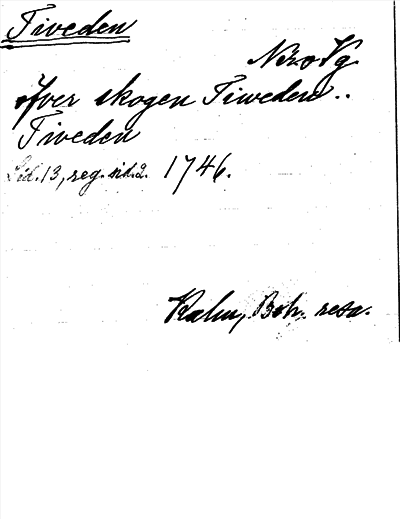 Tiveden
Nr o Vg
öfver skogen Tiweden..
Tiveden
Sid. 13, reg. sid. 2. 1746.
Kalm, Boh. resa.